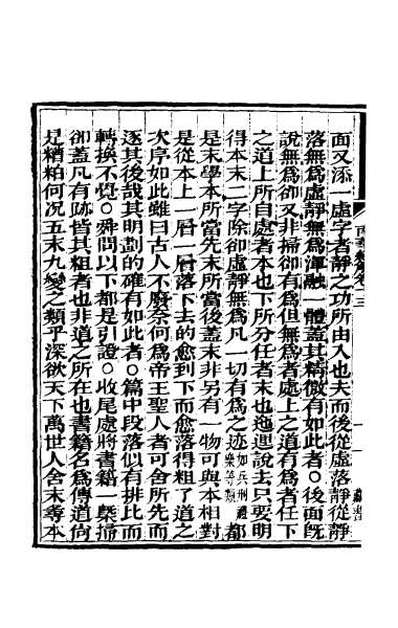 面又添一虛字者靜之功所由入也夫而後從虛落靜從靜
落無爲虛靜無爲渾融一體蓋其精微有如此者○後面旣
說無爲卻又非掃卻有爲但無爲者處上之道有爲者任下
之道上所自處者本也下所分任者末也迤邐說去只要明
得本末二字除卻虛靜無爲凡一切有爲之迹如兵刑禮樂等類都
是末學本所當先末所當後蓋末非另有一物可與本相對
是從本上一層一層落下去的愈到下而愈落得粗了道之
次序如此雖曰古人不廢奈何爲帝王聖人者可舍所先而
逐其後哉其明劃的確有如此者○篇中段落似有排比而
轉換不覺○舜問以下都是引證○收尾處將書籍一槩掃
卻蓋凡有跡皆其粗者也非道之所在也書籍名爲傳道尙
是糟粕何况五末九變之類乎深欲天下萬世人舍末尋本